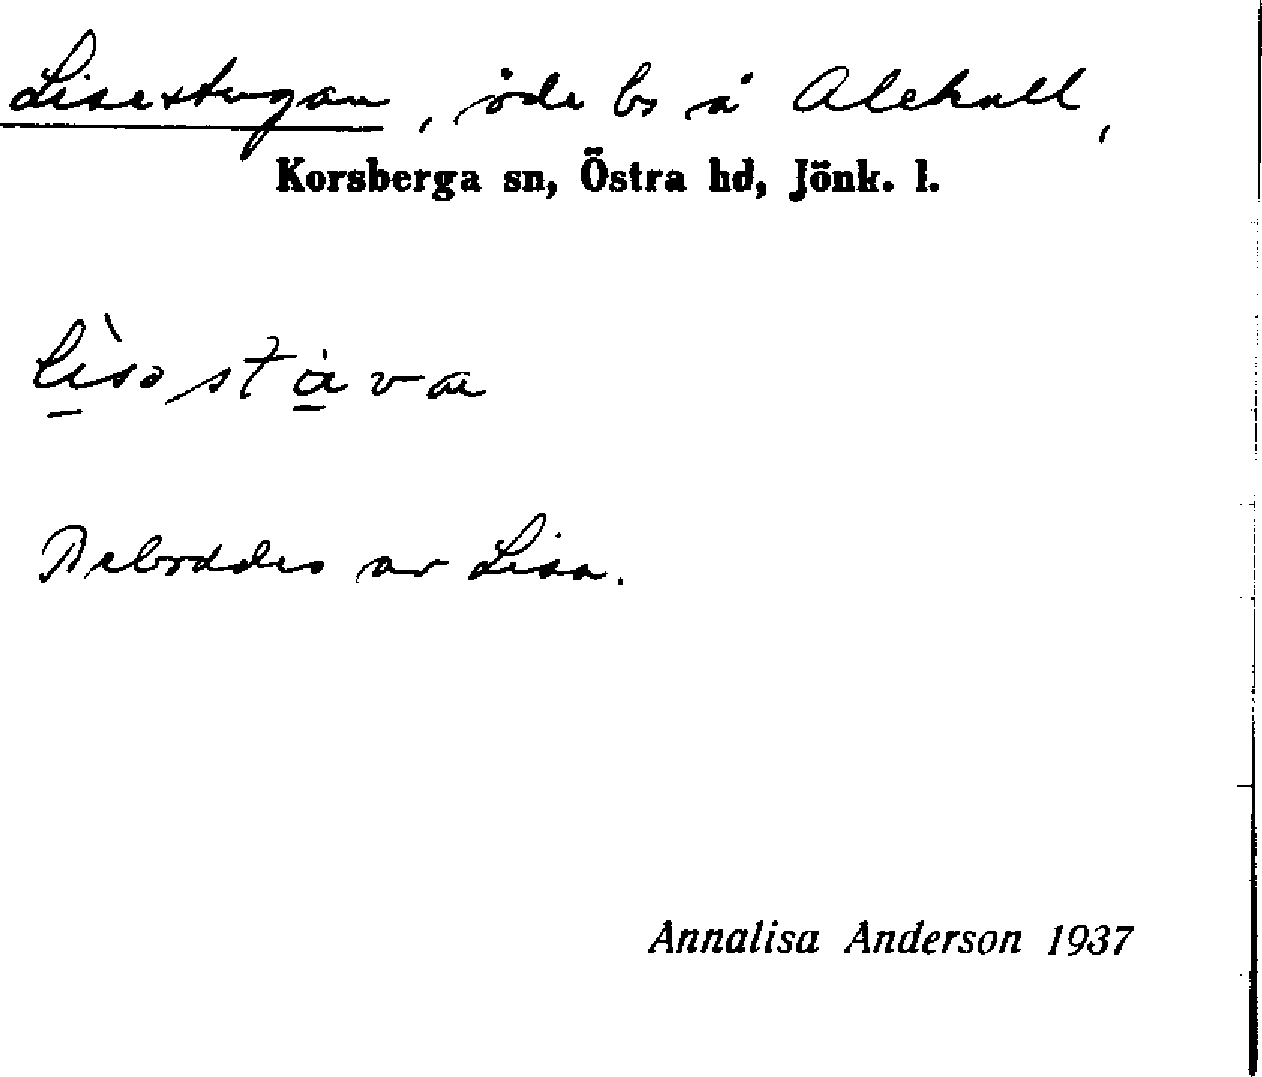 Lisestugan, öde bs å Alekull,
Korsberga sn, Östra hd, Jönk. l.
Beboddes av Lisa.
Annalisa Anderson 1937